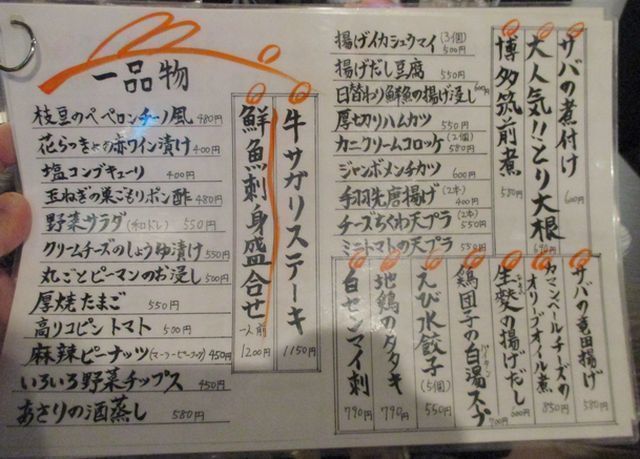 一品物
枝豆のペペロンチーノ風 480円
花らっきょの赤ワイン漬け 400円
塩コンブキューリ 400円
玉ねぎの巣ごもりポン酢 480円
野菜サラダ(和ドレ) 550円
クリームチーズのしょうゆ漬け 550円
丸ごとピーマンのお浸し 500円
厚焼たまご 550円
高リコピントマト 500円
麻辣ピーナッツ 450円
いろいろ野菜チップス 450円
あさりの酒蒸し 580円
牛サガリステーキ 1150円
鮮魚刺身盛合せ 一人前 1200円
揚げイカシュウマイ(3個) 500円
揚げだし豆腐 550円
日替わり鮮魚の揚げ浸し 600円
厚切りハムカツ 550円
カニクリームコロッケ(2個) 580円
ジャンボメンチカツ 600円
手羽先唐揚げ(2本) 400円
チーズちくわ天プラ(2本) 550円
ミニトマトの天プラ 550円
サバの煮付け 600円
大人気!!とり大根 690円
博多筑前煮 580円
サバの竜田揚げ 580円
カマンベールチーズのオリーブオイル煮 850円
生麩の揚げだし 600円
鶏団子の白湯スープ 700円
えび水餃子(5個) 550円
地鶏のタタキ 790円
白センマイ刺 790円